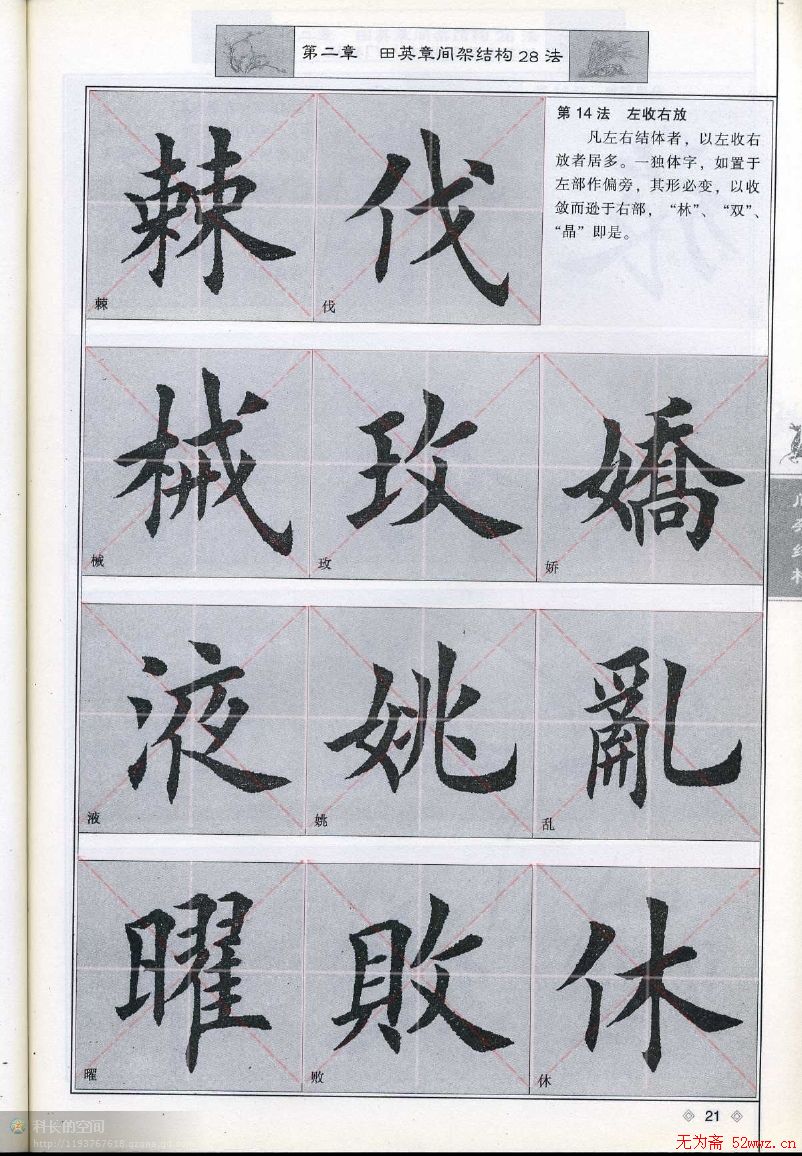 第二章 田英章间架结构28法
第14法 左收右放
凡左右结体者，以左收右
放者居多。一独体字，如置于
左部作偏旁，其形必变，以收
敛而逊于右部，“林”、“双”、
“晶”即是。
棘 伐
棘 伐
械 玫 嬌
械 玫 娇
液 姚 亂
液 姚 乱
曜 敗 休
曜 败 休
21
科长的空间
无为斋 52wwz.cn